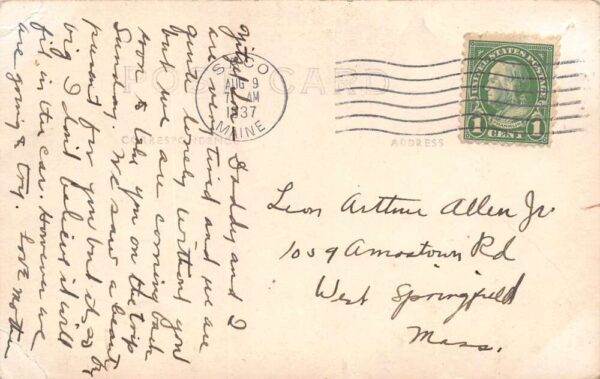 POST CARD
CORRESPONDENCE
ADDRESS
SACO
AUG 9
AM
1937
MAINE
UNITED STATES POSTAGE
1 CENT 1
Leon Arthur Allen Jr
1059 Amostown Rd
West Springfield
Mass.
Daddy and I
are very tired and we are
quite lonely without you
but we are coming back
soon to take you on the trip
Sunday. We saw a beauty
present for you but it is so
big I don't believe it will
fit in the car. However we
are going to try. Love Mother